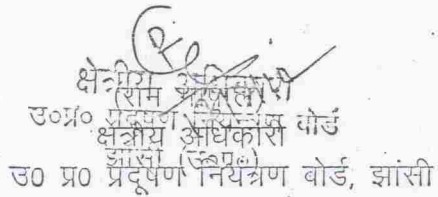 क्षेत्रीय अधिकारी
(राम
उ०प्र० प्रदूषण नियन्त्रण वोर्ड
क्षेत्रीय अधिकारी
झांसी (उ०प्र०)
उ0 प्र0 प्रदूषण नियंत्रण बोर्ड, झांसी